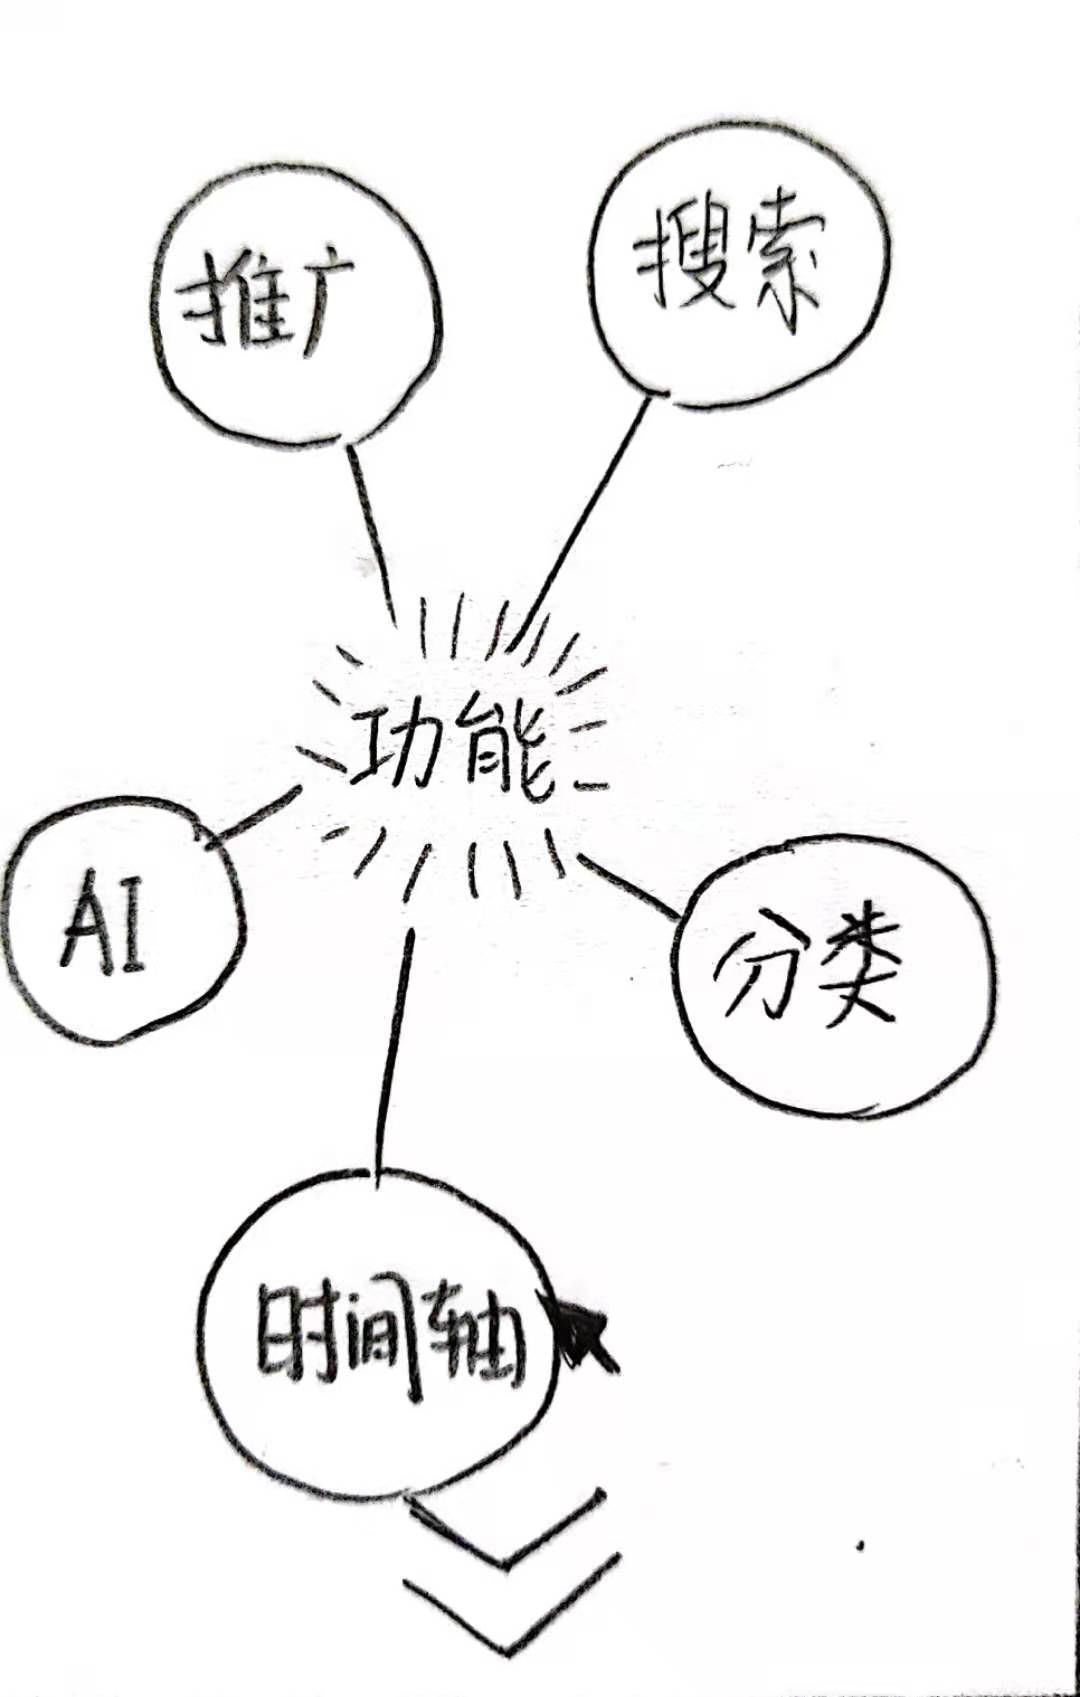 推广
搜索
功能
AI
分类
时间轴